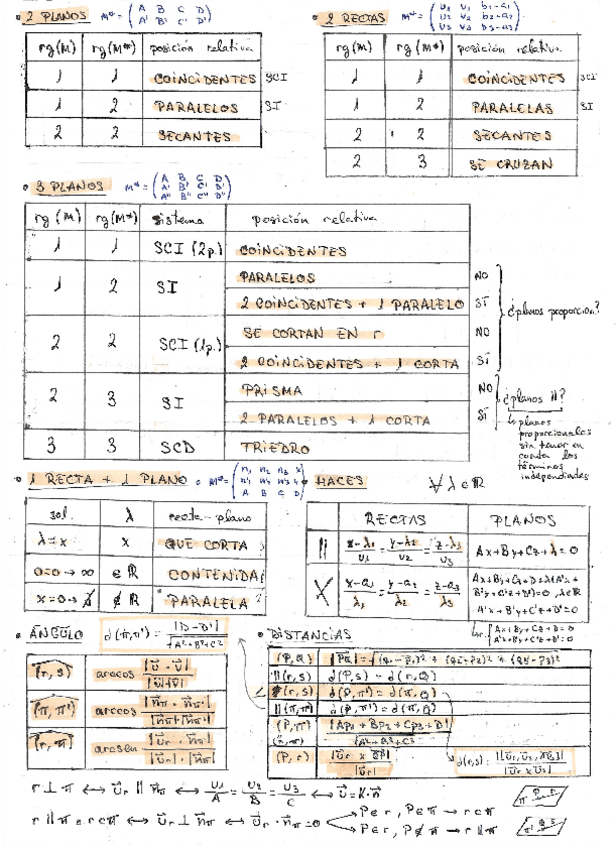 • 2 PLANOS M* = (A B C D / A' B' C' D')
rg(M) rg(M*) posición relativa
1 1 COINCIDENTES SCI
1 2 PARALELOS SI
2 2 SECANTES
• 2 RECTAS M* = (u1 v1 b1-a1 / u2 v2 b2-a2 / u3 v3 b3-a3)
rg(M) rg(M*) posición relativa
1 1 COINCIDENTES SCI
1 2 PARALELAS SI
2 2 SECANTES
2 3 SE CRUZAN
• 3 PLANOS M* = (A B C D / A' B' C' D' / A'' B'' C'' D'')
rg(M) rg(M*) sistema posición relativa
1 1 SCI (2p.) COINCIDENTES
1 2 SI PARALELOS NO
2 COINCIDENTES + 1 PARALELO SÍ
¿planos proporcion?
2 2 SCI (1p.) SE CORTAN EN r NO
2 COINCIDENTES + 1 CORTA SÍ
2 3 SI PRISMA NO
2 PARALELOS + 1 CORTA SÍ
¿planos //?
↳ planos
proporcionales
sin tener en
cuenta los
términos
independientes
3 3 SCD TRIEDRO
• 1 RECTA + 1 PLANO
sol. λ recta-plano
λ = x x QUE CORTA
0=0 → ∞ ∈ ℝ CONTENIDA
x=0 → ∄ ∉ ℝ PARALELA
• HACES ∀ λ ∈ ℝ
RECTAS PLANOS
// (x-λ1)/u1 = (y-λ2)/u2 = (z-λ3)/u3 Ax+By+Cz+λ=0
X (x-a1)/λ1 = (y-a2)/λ2 = (z-a3)/λ3 Ax+By+Cz+D+λ(A'x+
B'y+C'z+D')=0, λ∈ℝ
A'x+B'y+C'z+D'=0
r: { Ax+By+Cz+D=0
A'x+B'y+C'z+D'=0
• ÁNGULO d(π,π') = |D-D'| / √A²+B²+C²
(r, s) arccos |u·v| / |u||v|
(π, π') arccos |nπ·nπ'| / |nπ||nπ'|
(r, π) arcsen |ur·nπ| / |ur|·|nπ|
• DISTANCIAS
(P,Q) |PQ| = √(q1-p1)²+(q2-p2)²+(q3-p3)²
//(r,s) d(P,s) = d(r,Q)
(r,s) d(P,π') = d(π,Q)
//(π,π') d(P,π') = d(π,Q)
(P,π) |Ap1+Bp2+Cp3+D| / √A²+B²+C²
(r,π)
(P,r) |ur × | / |ur|
d(r,s) = / |ur × vs|
r ⊥ π ↔ ur // nπ ↔ u1/A = u2/B = u3/C ↔ u = k·n
r // π o r⊂π ↔ ur ⊥ nπ ↔ ur · nπ = 0 → P∈r, P∈π → r⊂π
→ P∈r, P∉π → r//π